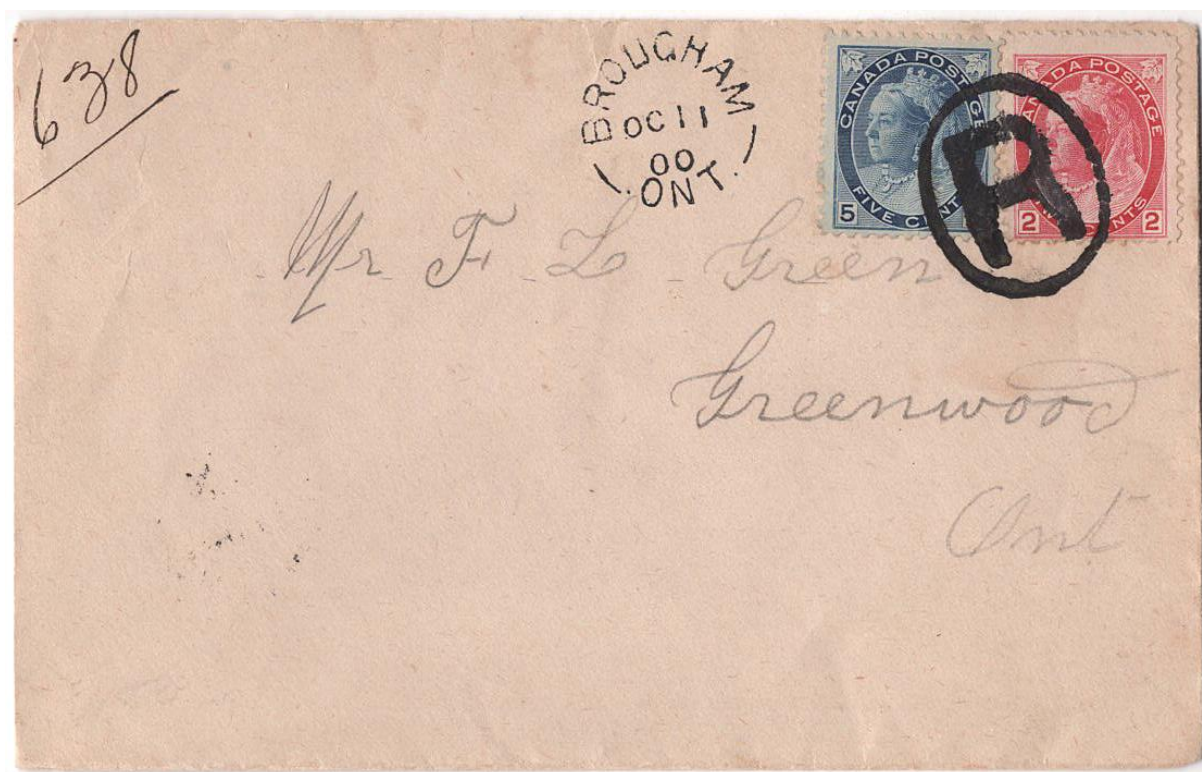 638
BROUGHAM
OC 11
00
ONT.
CANADA POSTAGE
FIVE CENTS
5
CANADA POSTAGE
CENTS
2 2
R
Mr F L Green
Greenwood
Ont